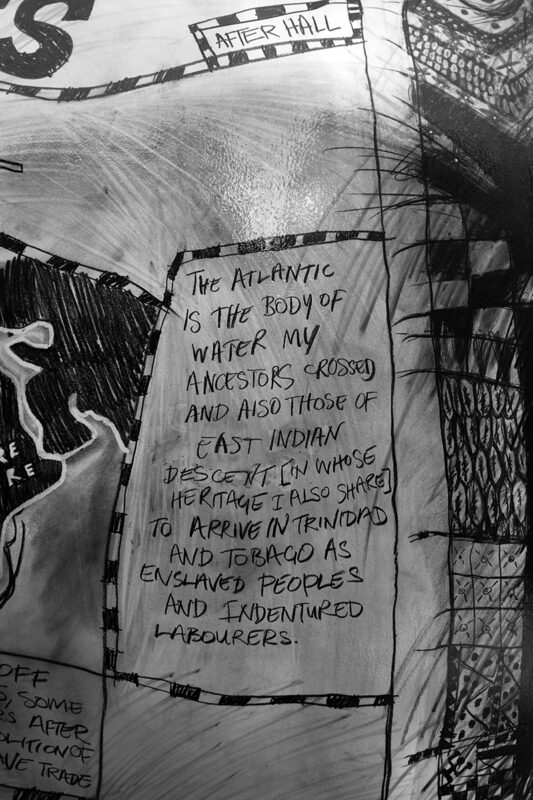 S
AFTER HALL
THE ATLANTIC
IS THE BODY OF
WATER MY
ANCESTORS CROSSED
AND ALSO THOSE OF
EAST INDIAN
DESCENT [IN WHOSE
HERITAGE I ALSO SHARE]
TO ARRIVE IN TRINIDAD
AND TOBAGO AS
ENSLAVED PEOPLES
AND INDENTURED
LABOURERS.
RE
RE
OFF
S, SOME
RS AFTER
OLITION OF
AVE TRADE